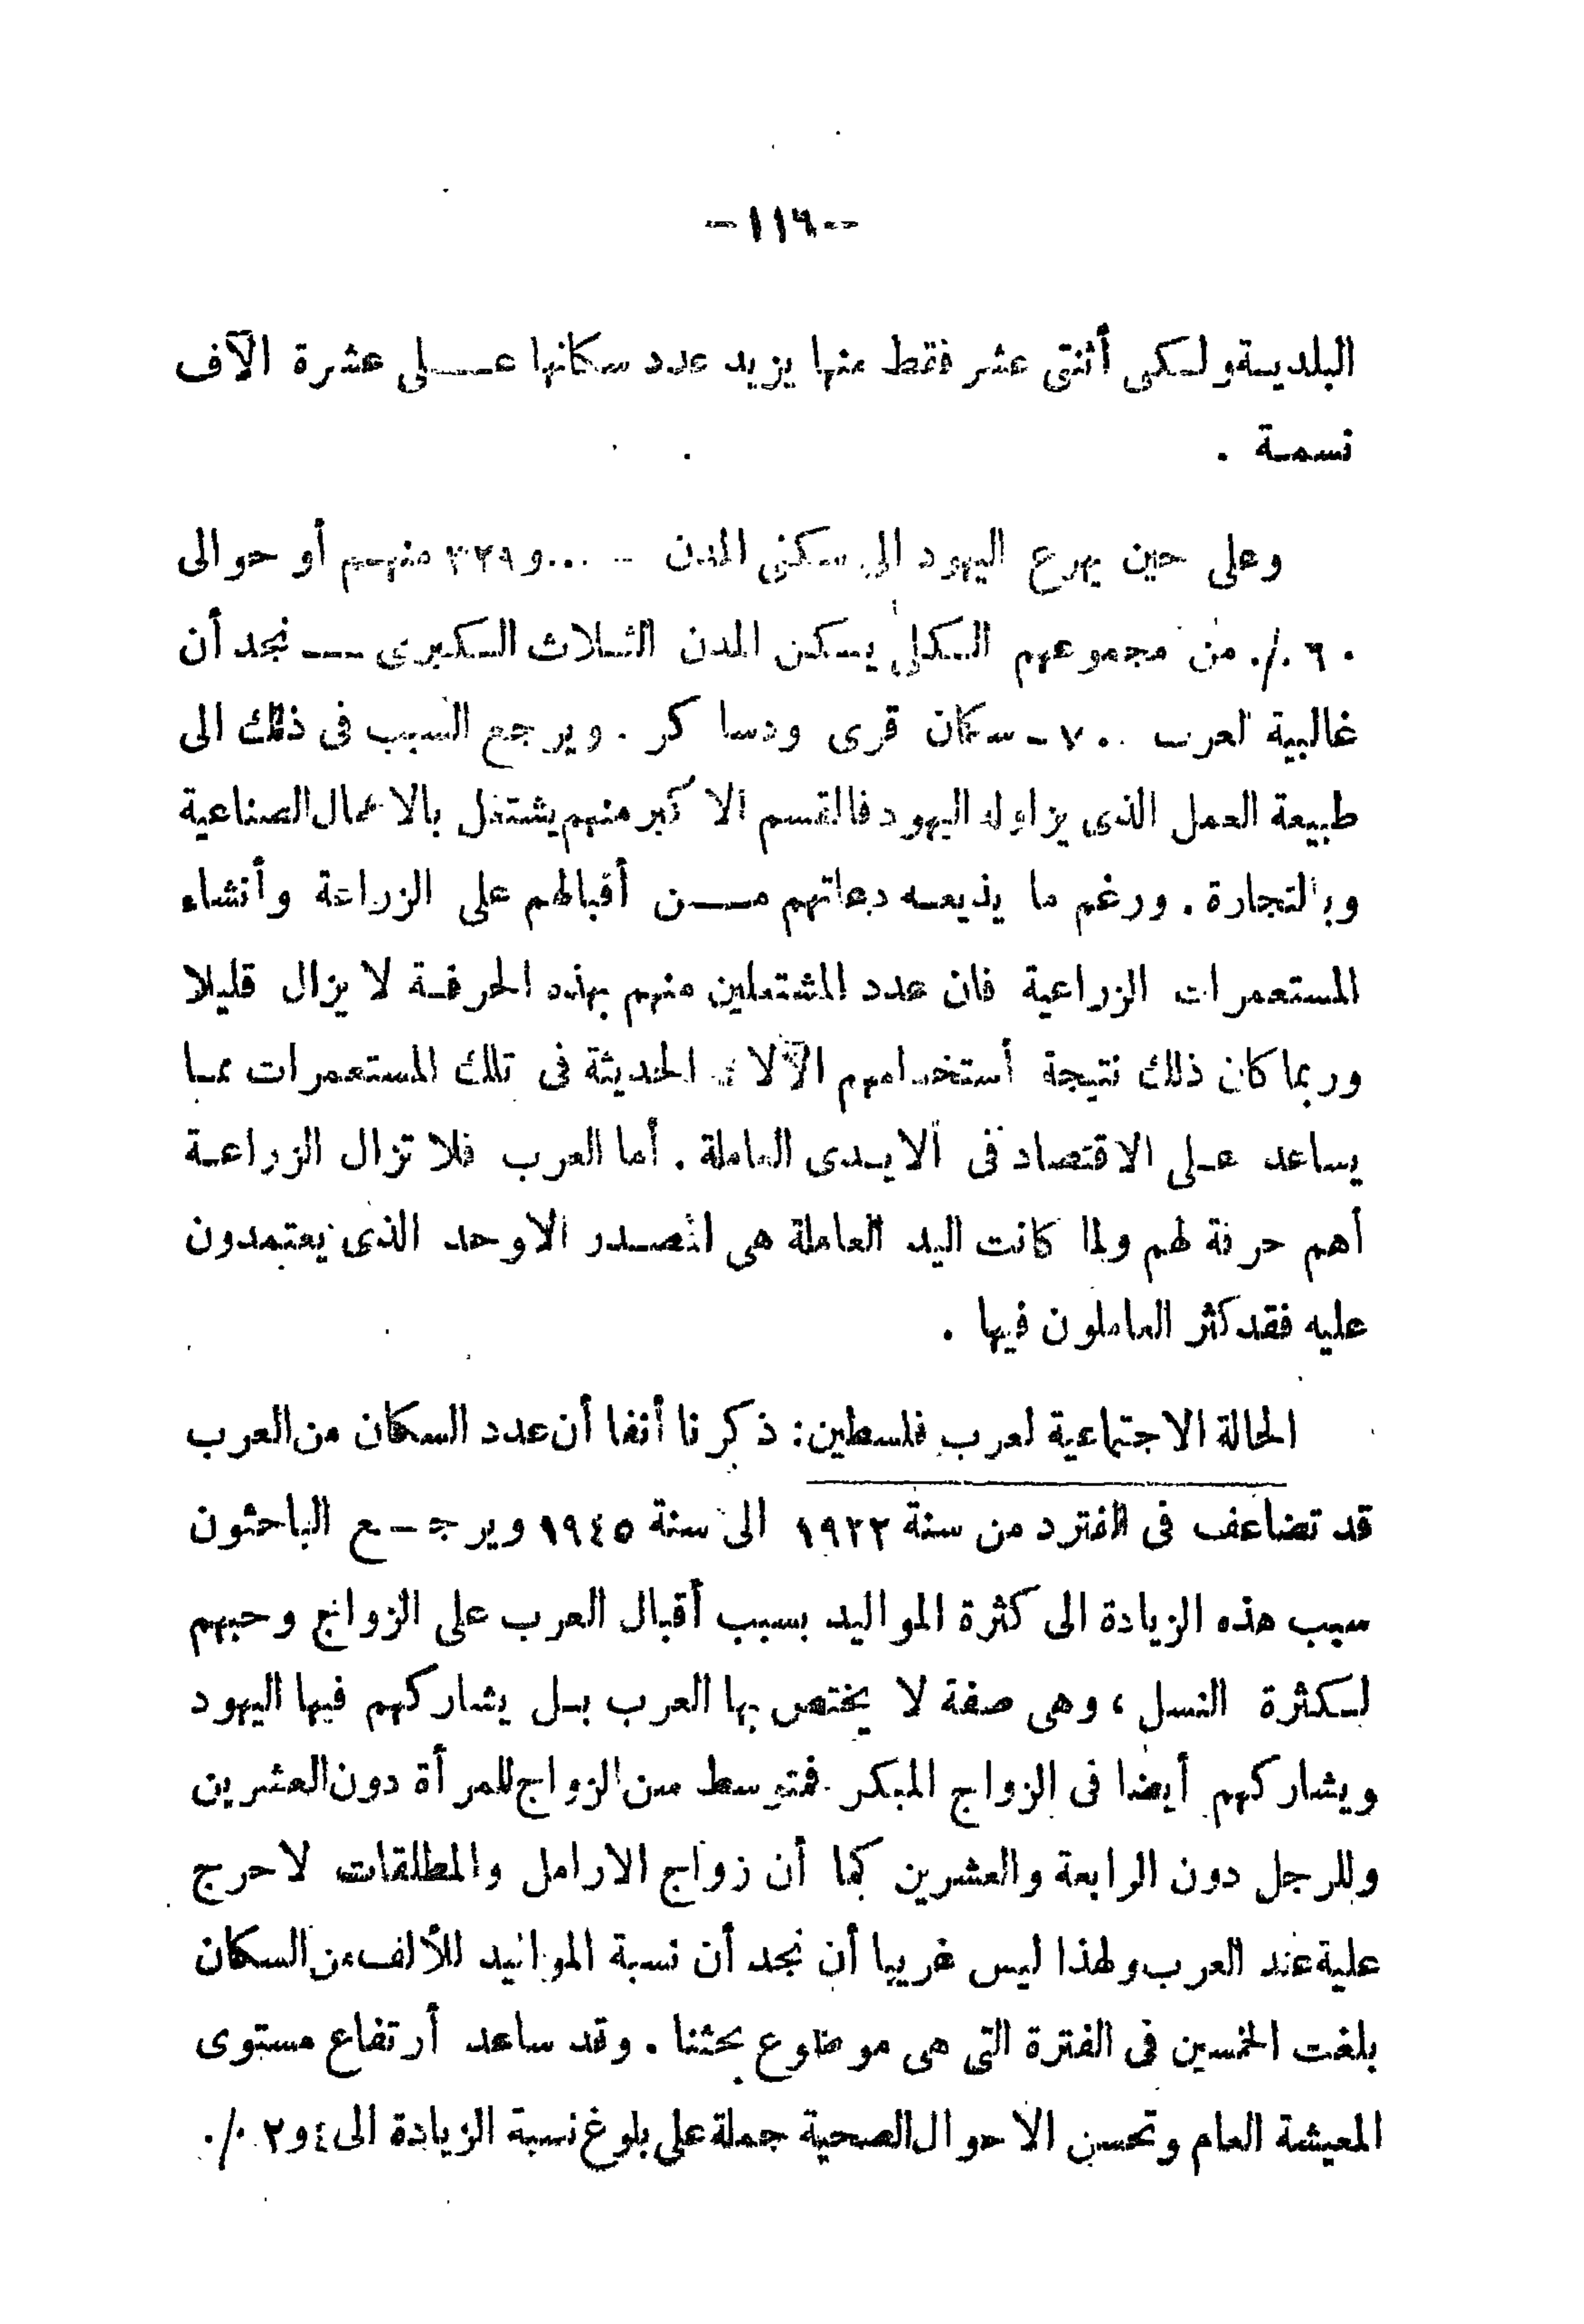 -١١٦-
البلدية ولكى أثنتى عشر فقط منها يزيد عدد سكانها على عشرة الآف
نسمة .
وعلى حين يهرع اليهود الى سكنى المدن - ٠٠٠و٣٢٩ منهم أو حوالى
٦٠ ٪ من مجموعهم الكلى يسكن المدن الثلاث الكبرى — نجد أن
غالبية العرب ٧٠ - سكان قرى ودساكر . ويرجع السبب فى ذلك الى
طبيعة العمل الذى يزاوله اليهود فالقسم الاكبر منهم يشتغل بالاعمال الصناعية
وبالتجارة . ورغم ما يذيعه دعاتهم من أقبالهم على الزراعة وأنشاء
المستعمرات الزراعية فان عدد المشتغلين منهم بهذه الحرفة لا يزال قليلا
وربما كان ذلك نتيجة أستخدامهم الآلات الحديثة فى تلك المستعمرات مما
يساعد على الاقتصاد فى الايدى العاملة . أما العرب فلا تزال الزراعة
أهم حرفة لهم ولما كانت اليد العاملة هى المصدر الاوحد الذى يعتمدون
عليه فقد كثر العاملون فيها .
الحالة الاجتماعية لعرب فلسطين : ذكرنا أنفا أن عدد السكان من العرب
قد تضاعف فى الفترد من سنة ١٩٢٢ الى سنة ١٩٤٥ ويرجع الباحثون
سبب هذه الزيادة الى كثرة المواليد بسبب أقبال العرب على الزواج وحبهم
لكثرة النسل ، وهى صفة لا يختص بها العرب بل يشاركهم فيها اليهود
ويشاركهم أيضا فى الزواج المبكر . فمتوسط سن الزواج للمرأة دون العشرين
وللرجل دون الرابعة والعشرين كما أن زواج الارامل والمطلقات لا حرج
علية عند العرب ولهذا ليس غريبا أن نجد أن نسبة المواليد للألف من السكان
بلغت الخمسين فى الفترة التى هى موضوع بحثنا . وقد ساعد أرتفاع مستوى
المعيشة العام وتحسن الاحوال الصحية جملة على بلوغ نسبة الزيادة الى ٤و٢ ٪ .